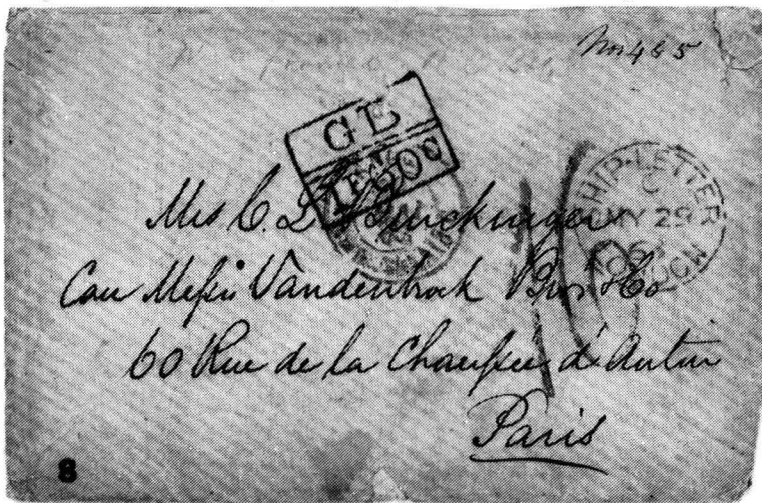 No 465
GB
1F60c
SHIP-LETTER
C
MY 29
6
LONDON
Mrs C. L.
Care Messrs Vandenbrock Bros & Co
60 Rue de la Chaussée d'Antin
Paris
8